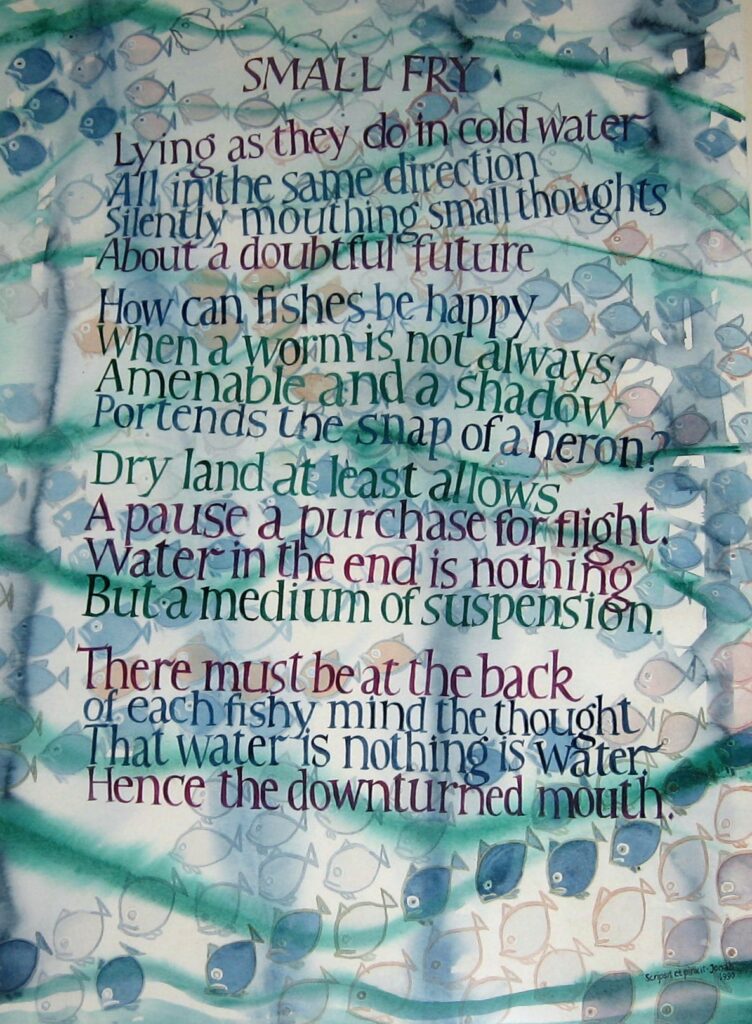 SMALL FRY
Lying as they do in cold water
All in the same direction
Silently mouthing small thoughts
About a doubtful future
How can fishes be happy
When a worm is not always
Amenable and a shadow
Portends the snap of a heron?
Dry land at least allows
A pause a purchase for flight.
Water in the end is nothing
But a medium of suspension.
There must be at the back
of each fishy mind the thought
That water is nothing is water
Hence the downturned mouth.
Scripsit et pinxit - Jonah
1990